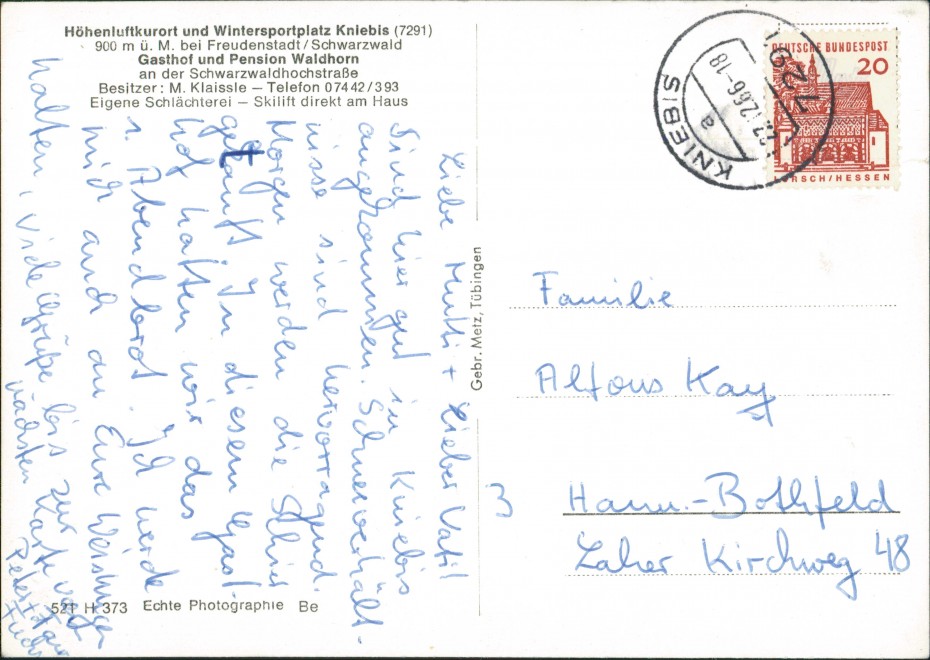 Höhenluftkurort und Wintersportplatz Kniebis (7291)
900 m ü. M. bei Freudenstadt/Schwarzwald
Gasthof und Pension Waldhorn
an der Schwarzwaldhochstraße
Besitzer: M. Klaissle — Telefon 07442/393
Eigene Schlächterei — Skilift direkt am Haus
Liebe Mutti + Lieber Vati!
Sind hier gut in Kniebis
angekommen. Schneeverhält-
nisse sind hervorragend.
Morgen werden die Schier
getauft. In diesem Gast-
hof hatten wir das
1. Abendbrot. Ich werde
mich auch an Eure Weisungen
halten, viele Grüße bis zur
nächsten Karte
Peter +
521 H 373 Echte Photographie Be
Gebr. Metz, Tübingen
7291
27.12.66-18
a
KNIEBIS
DEUTSCHE BUNDESPOST
20
LORSCH/HESSEN
Familie
Alfons Kay
3 Hann.-Bothfeld
Laher Kirchweg 48